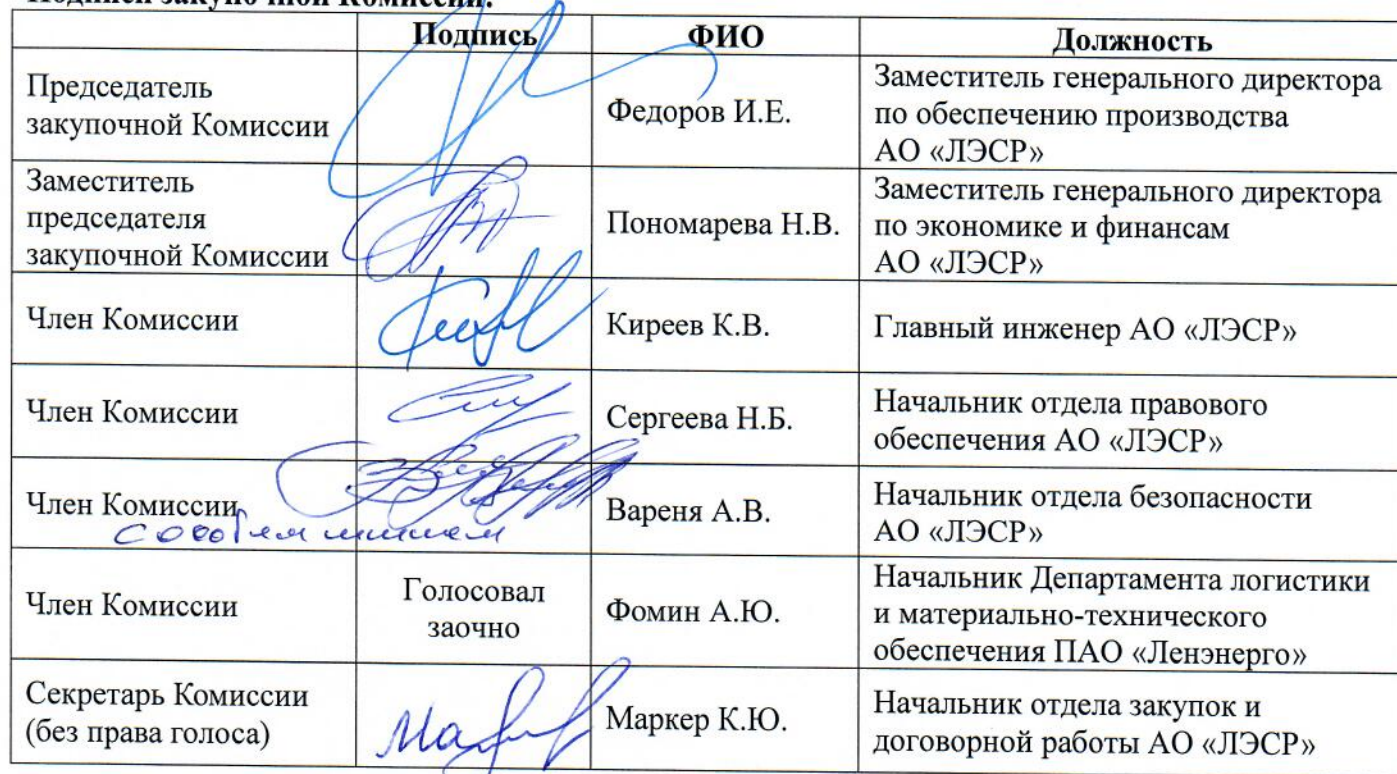 Подписи закупочной Комиссии:
Подпись ФИО Должность
Председатель
закупочной Комиссии
Федоров И.Е.
Заместитель генерального директора
по обеспечению производства
АО «ЛЭСР»
Заместитель
председателя
закупочной Комиссии
Пономарева Н.В.
Заместитель генерального директора
по экономике и финансам
АО «ЛЭСР»
Член Комиссии
Киреев К.В.
Главный инженер АО «ЛЭСР»
Член Комиссии
Сергеева Н.Б.
Начальник отдела правового
обеспечения АО «ЛЭСР»
Член Комиссии
с особым мнением
Вареня А.В.
Начальник отдела безопасности
АО «ЛЭСР»
Член Комиссии
Голосовал
заочно
Фомин А.Ю.
Начальник Департамента логистики
и материально-технического
обеспечения ПАО «Ленэнерго»
Секретарь Комиссии
(без права голоса)
Маркер К.Ю.
Начальник отдела закупок и
договорной работы АО «ЛЭСР»